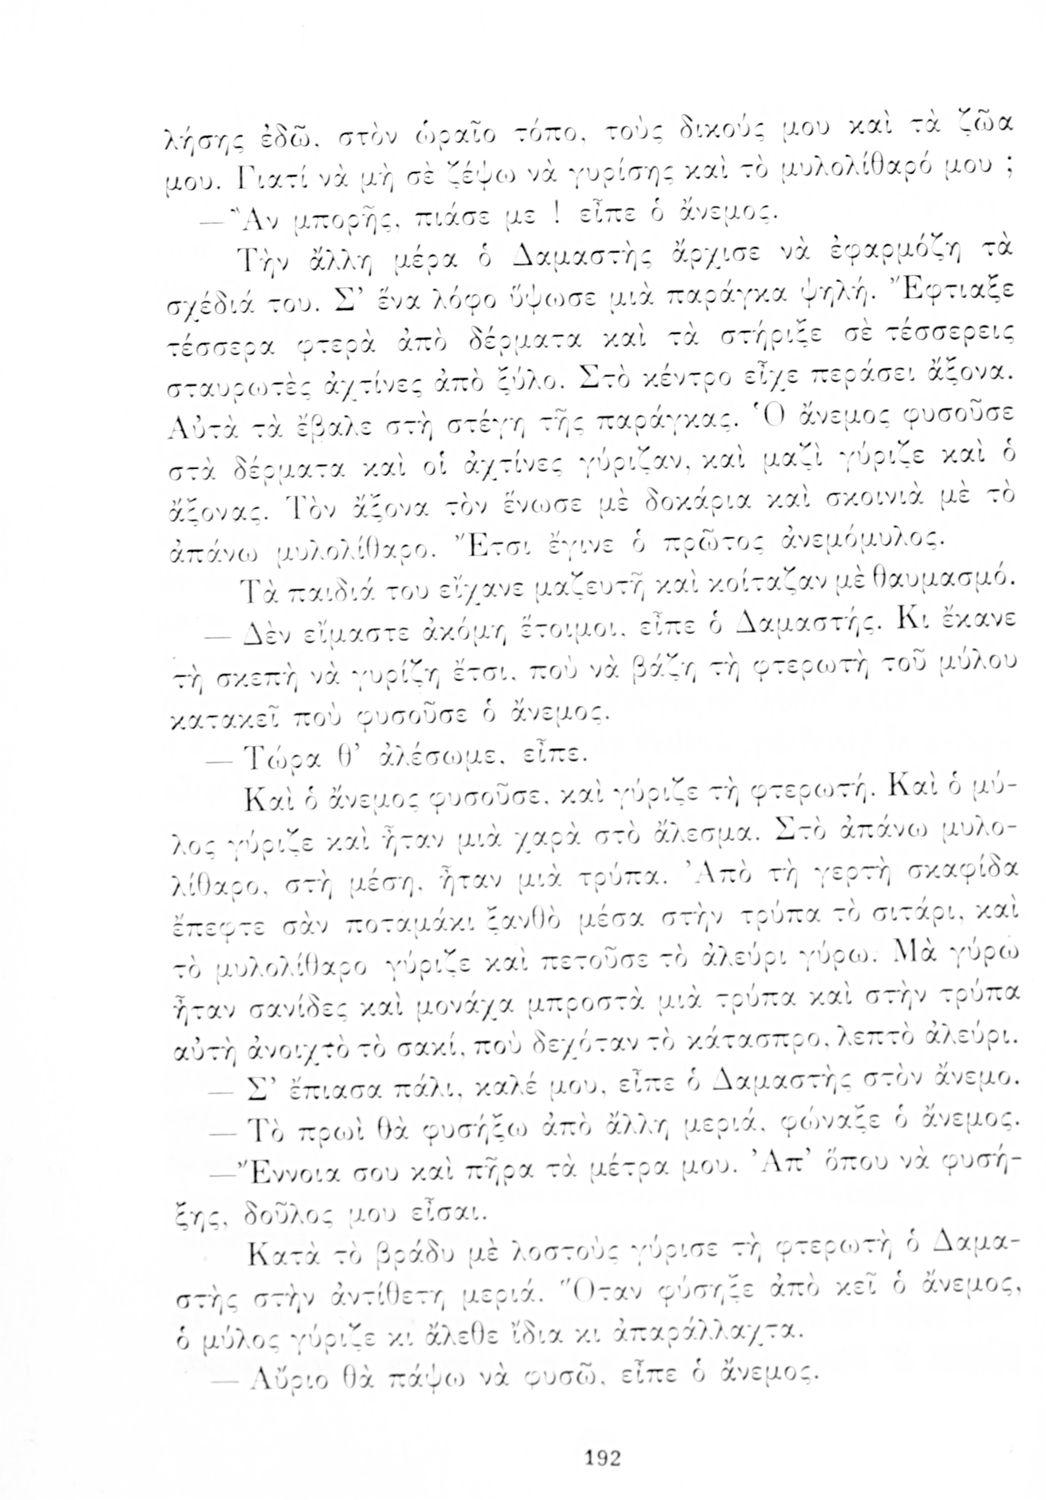 λήσης ἐδῶ, στὸν ὡραῖο τόπο, τοὺς δικούς μου καὶ τὰ ζῶα
μου. Γιατί νὰ μὴ σὲ ζέψω νὰ γυρίσης καὶ τὸ μυλολίθαρό μου ;
— Ἂν μπορῆς, πιάσε με ! εἶπε ὁ ἄνεμος.
Τὴν ἄλλη μέρα ὁ Δαμαστὴς ἄρχισε νὰ ἐφαρμόζη τὰ
σχέδιά του. Σ’ ἕνα λόφο ὕψωσε μιὰ παράγκα ψηλή. Ἔφτιαξε
τέσσερα φτερὰ ἀπὸ δέρματα καὶ τὰ στήριξε σὲ τέσσερεις
σταυρωτὲς ἀχτίνες ἀπὸ ξύλο. Στὸ κέντρο εἶχε περάσει ἄξονα.
Αὐτὰ τὰ ἔβαλε στὴ στέγη τῆς παράγκας. Ὁ ἄνεμος φυσοῦσε
στὰ δέρματα καὶ οἱ ἀχτίνες γύριζαν, καὶ μαζὶ γύριζε καὶ ὁ
ἄξονας. Τὸν ἄξονα τὸν ἕνωσε μὲ δοκάρια καὶ σκοινιὰ μὲ τὸ
ἀπάνω μυλολίθαρο. Ἔτσι ἔγινε ὁ πρῶτος ἀνεμόμυλος.
Τὰ παιδιά του εἴχανε μαζευτῆ καὶ κοίταζαν μὲ θαυμασμό.
— Δὲν εἴμαστε ἀκόμη ἕτοιμοι, εἶπε ὁ Δαμαστής. Κι ἔκανε
τὴ σκεπὴ νὰ γυρίζη ἔτσι, ποὺ νὰ βάζη τὴ φτερωτὴ τοῦ μύλου
κατακεῖ ποὺ φυσοῦσε ὁ ἄνεμος.
— Τώρα θ’ ἀλέσωμε, εἶπε.
Καὶ ὁ ἄνεμος φυσοῦσε, καὶ γύριζε τὴ φτερωτή. Καὶ ὁ μύ-
λος γύριζε καὶ ἦταν μιὰ χαρὰ στὸ ἄλεσμα. Στὸ ἀπάνω μυλο-
λίθαρο, στὴ μέση, ἦταν μιὰ τρύπα. Ἀπὸ τὴ γερτὴ σκαφίδα
ἔπεφτε σὰν ποταμάκι ξανθὸ μέσα στὴν τρύπα τὸ σιτάρι, καὶ
τὸ μυλολίθαρο γύριζε καὶ πετοῦσε τὸ ἀλεύρι γύρω. Μὰ γύρω
ἦταν σανίδες καὶ μονάχα μπροστὰ μιὰ τρύπα καὶ στὴν τρύπα
αὐτὴ ἀνοιχτὸ τὸ σακί, ποὺ δεχόταν τὸ κάτασπρο, λεπτὸ ἀλεύρι.
— Σ’ ἔπιασα πάλι, καλέ μου, εἶπε ὁ Δαμαστὴς στὸν ἄνεμο.
— Τὸ πρωὶ θὰ φυσήξω ἀπὸ ἄλλη μεριά, φώναξε ὁ ἄνεμος.
— Ἔννοια σου καὶ πῆρα τὰ μέτρα μου. Ἀπ’ ὅπου νὰ φυσή-
ξης, δοῦλος μου εἶσαι.
Κατὰ τὸ βράδυ μὲ λοστοὺς γύρισε τὴ φτερωτὴ ὁ Δαμα-
στὴς στὴν ἀντίθετη μεριά. Ὅταν φύσηξε ἀπὸ κεῖ ὁ ἄνεμος,
ὁ μύλος γύριζε κι ἄλεθε ἴδια κι ἀπαράλλαχτα.
— Αὔριο θὰ πάψω νὰ φυσῶ, εἶπε ὁ ἄνεμος.
192